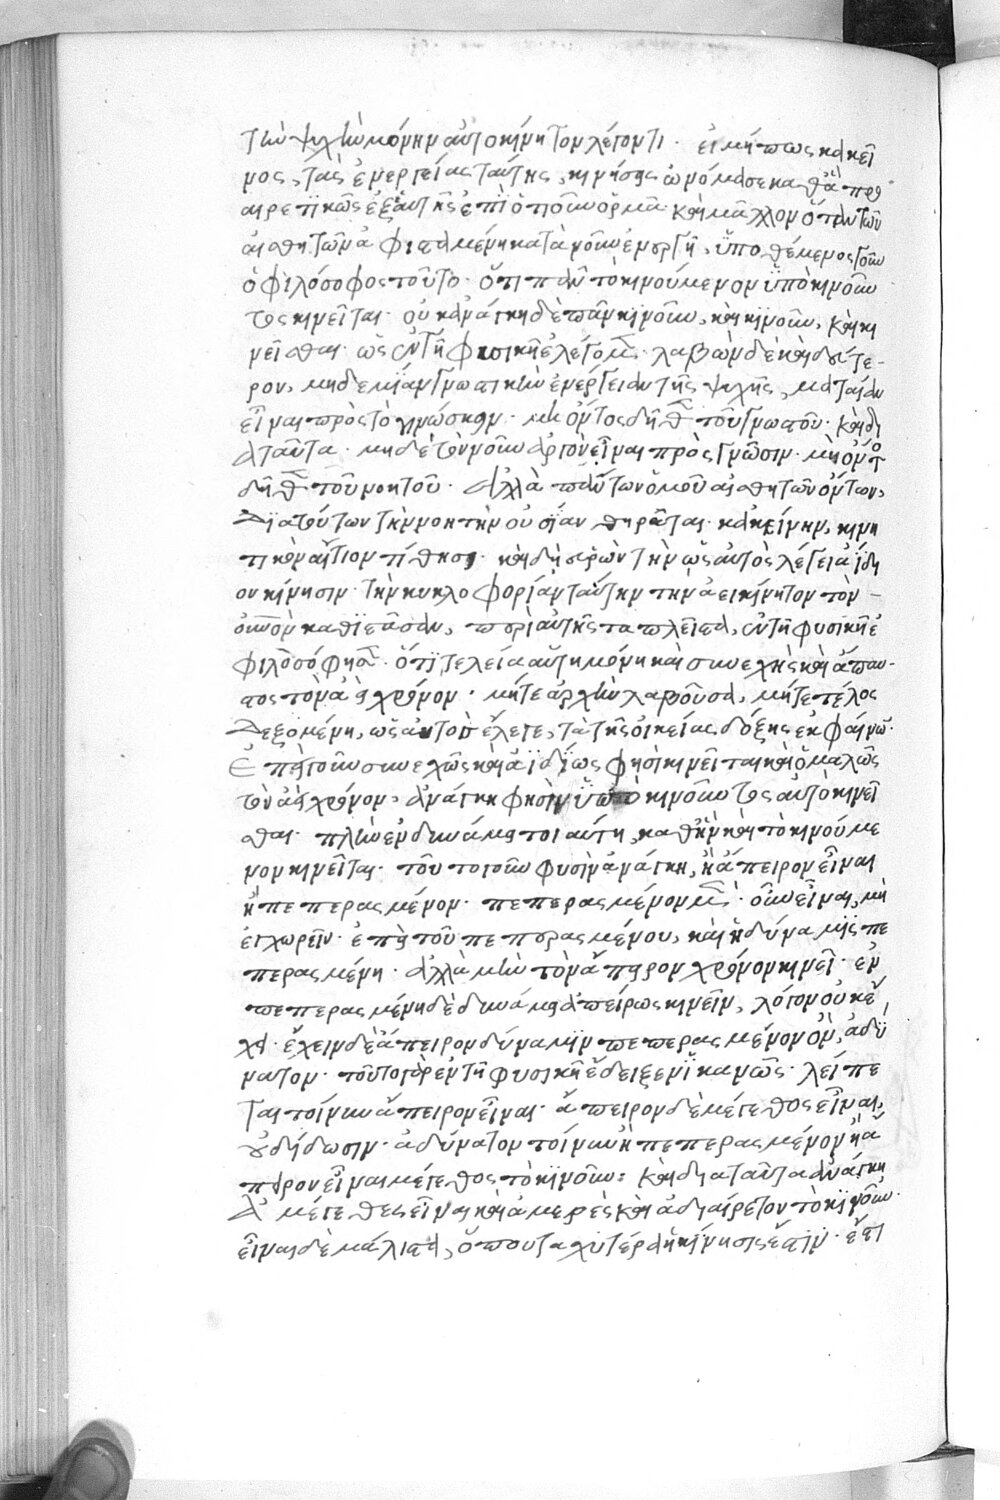 τὴν ψυχὴν μόνην αὐτοκίνητον λέγοντι· εἰ μήπως κἀκεῖ
νος, τὰς ἐνεργείας ταύτης, κινήσεις ὠνόμασε καθὰ προ
αιρετικῶς ἐξ αὐτῆς ἐπὶ ὁτιοῦν ὁρμᾶ· καὶ μᾶλλον ὅταν τῶν
αἰσθητῶν ἀφισταμένη κατὰ νοῦν ἐνεργῆ, ὑποθέμενος γοῦν
ὁ φιλόσοφος τοῦτο· ὅτι πᾶν τὸ κινούμενον ὑπὸ κινοῦν
τος κινεῖται· οὐκ ἀνάγκη δὲ πᾶν κινοῦν, καὶ κινοῦν, καὶ κι
νεῖσθαι· ὡς ἐν τῆ φυσικῆ ἐλέγομεν· λαβὼν δὲ καὶ δεύτε-
ρον, μηδεμίαν γνωστικὴν ἐνέργειαν τῆς ψυχῆς, ματαίαν
εἶναι πρὸς τὸ γινώσκειν· μὴ ὄντος δῆθεν τοῦ γνωστοῦ· καὶ δι
ὰ ταῦτα· μηδὲ τὸν νοῦν ἀργὸν εἶναι πρὸς γνῶσιν· μὴ ὄντος
δῆθεν τοῦ νοητοῦ· ἀλλὰ πάντων ὁμοῦ αἰσθητῶν ὄντων,
διὰ τούτων τὴν νοητὴν οὐσίαν θηρᾶται· κἀκείνην, κινη
τικὸν αἴτιον τίθησι· καὶ δὴ εὑρὼν τὴν ὡς αὐτὸς λέγει ἀΐδι
ον κίνησιν· τὴν κυκλοφορίαν ταύτην τὴν ἀεικίνητον τὸν -
οὐρανὸν καθιστᾶσαν, περὶ αὐτῆς τὰ πλεῖστα, ἐν τῆ φυσικῆ ἐ
φιλοσόφησεν· ὅτι τελεία αὕτη μόνη καὶ συνεχὴς καὶ ἄπαυ-
στος τὸν ἀεὶ χρόνον· μήτε ἀρχὴν λαβοῦσα, μήτε τέλος
δεξομένη, ὡς αὐτὸς ἔλεγε, τὰ τῆς οἰκείας δόξης ἐκφαίνων·
Ἐπεὶ γοῦν συνεχῶς καὶ ἀϊδίως φησὶ κινεῖται καὶ ὁμαλῶς
τὸν ἀεὶ χρόνον, ἀνάγκη φησὶν ὑπὸ κινοῦντος αὐτὸ κινεῖ
σθαι· πλὴν ἐν δυνάμει τοιαύτη, καθ' ἣν καὶ τὸ κινούμε
νον κινεῖται· τοῦτο γοῦν φησὶν ἀνάγκη, ἢ ἄπειρον εἶναι
ἢ πεπερασμένον· πεπερασμένον μὲν οὖν εἶναι, μὴ
ἐγχωρεῖν· ἐπεὶ τοῦ πεπερασμένου, καὶ ἡ δύναμις πε
περασμένη· ἀλλὰ μὴν τὸν ἄπειρον χρόνον κινεῖ· ἐν
πεπερασμένη δὲ δυνάμει ἀπείρως κινεῖν, λόγον οὐκ ἔ
χει· ἔχειν δὲ ἄπειρον δύναμιν πεπερασμένον ὂν, ἀδύ
νατον· τοῦτο γὰρ ἐν τῆ φυσικῆ ἔδειξεν ἱκανῶς· λείπε
ται τοίνυν ἄπειρον εἶναι· ἄπειρον δὲ μέγεθος εἶναι,
οὐ δίδωσιν· ἀδύνατον τοίνυν ἢ πεπερασμένον ἢ ἄ
πειρον εἶναι μέγεθος τὸ κινοῦν: καὶ διὰ ταῦτα ἀνάγκη
ἀμέγεθες εἶναι καὶ ἀμερὲς καὶ ἀδιαίρετον τὸ κινοῦν·
εἶναι δὲ μάλιστα, ὅπου ταχυτέρα ἡ κίνησις ἐστὶν· ἔτι